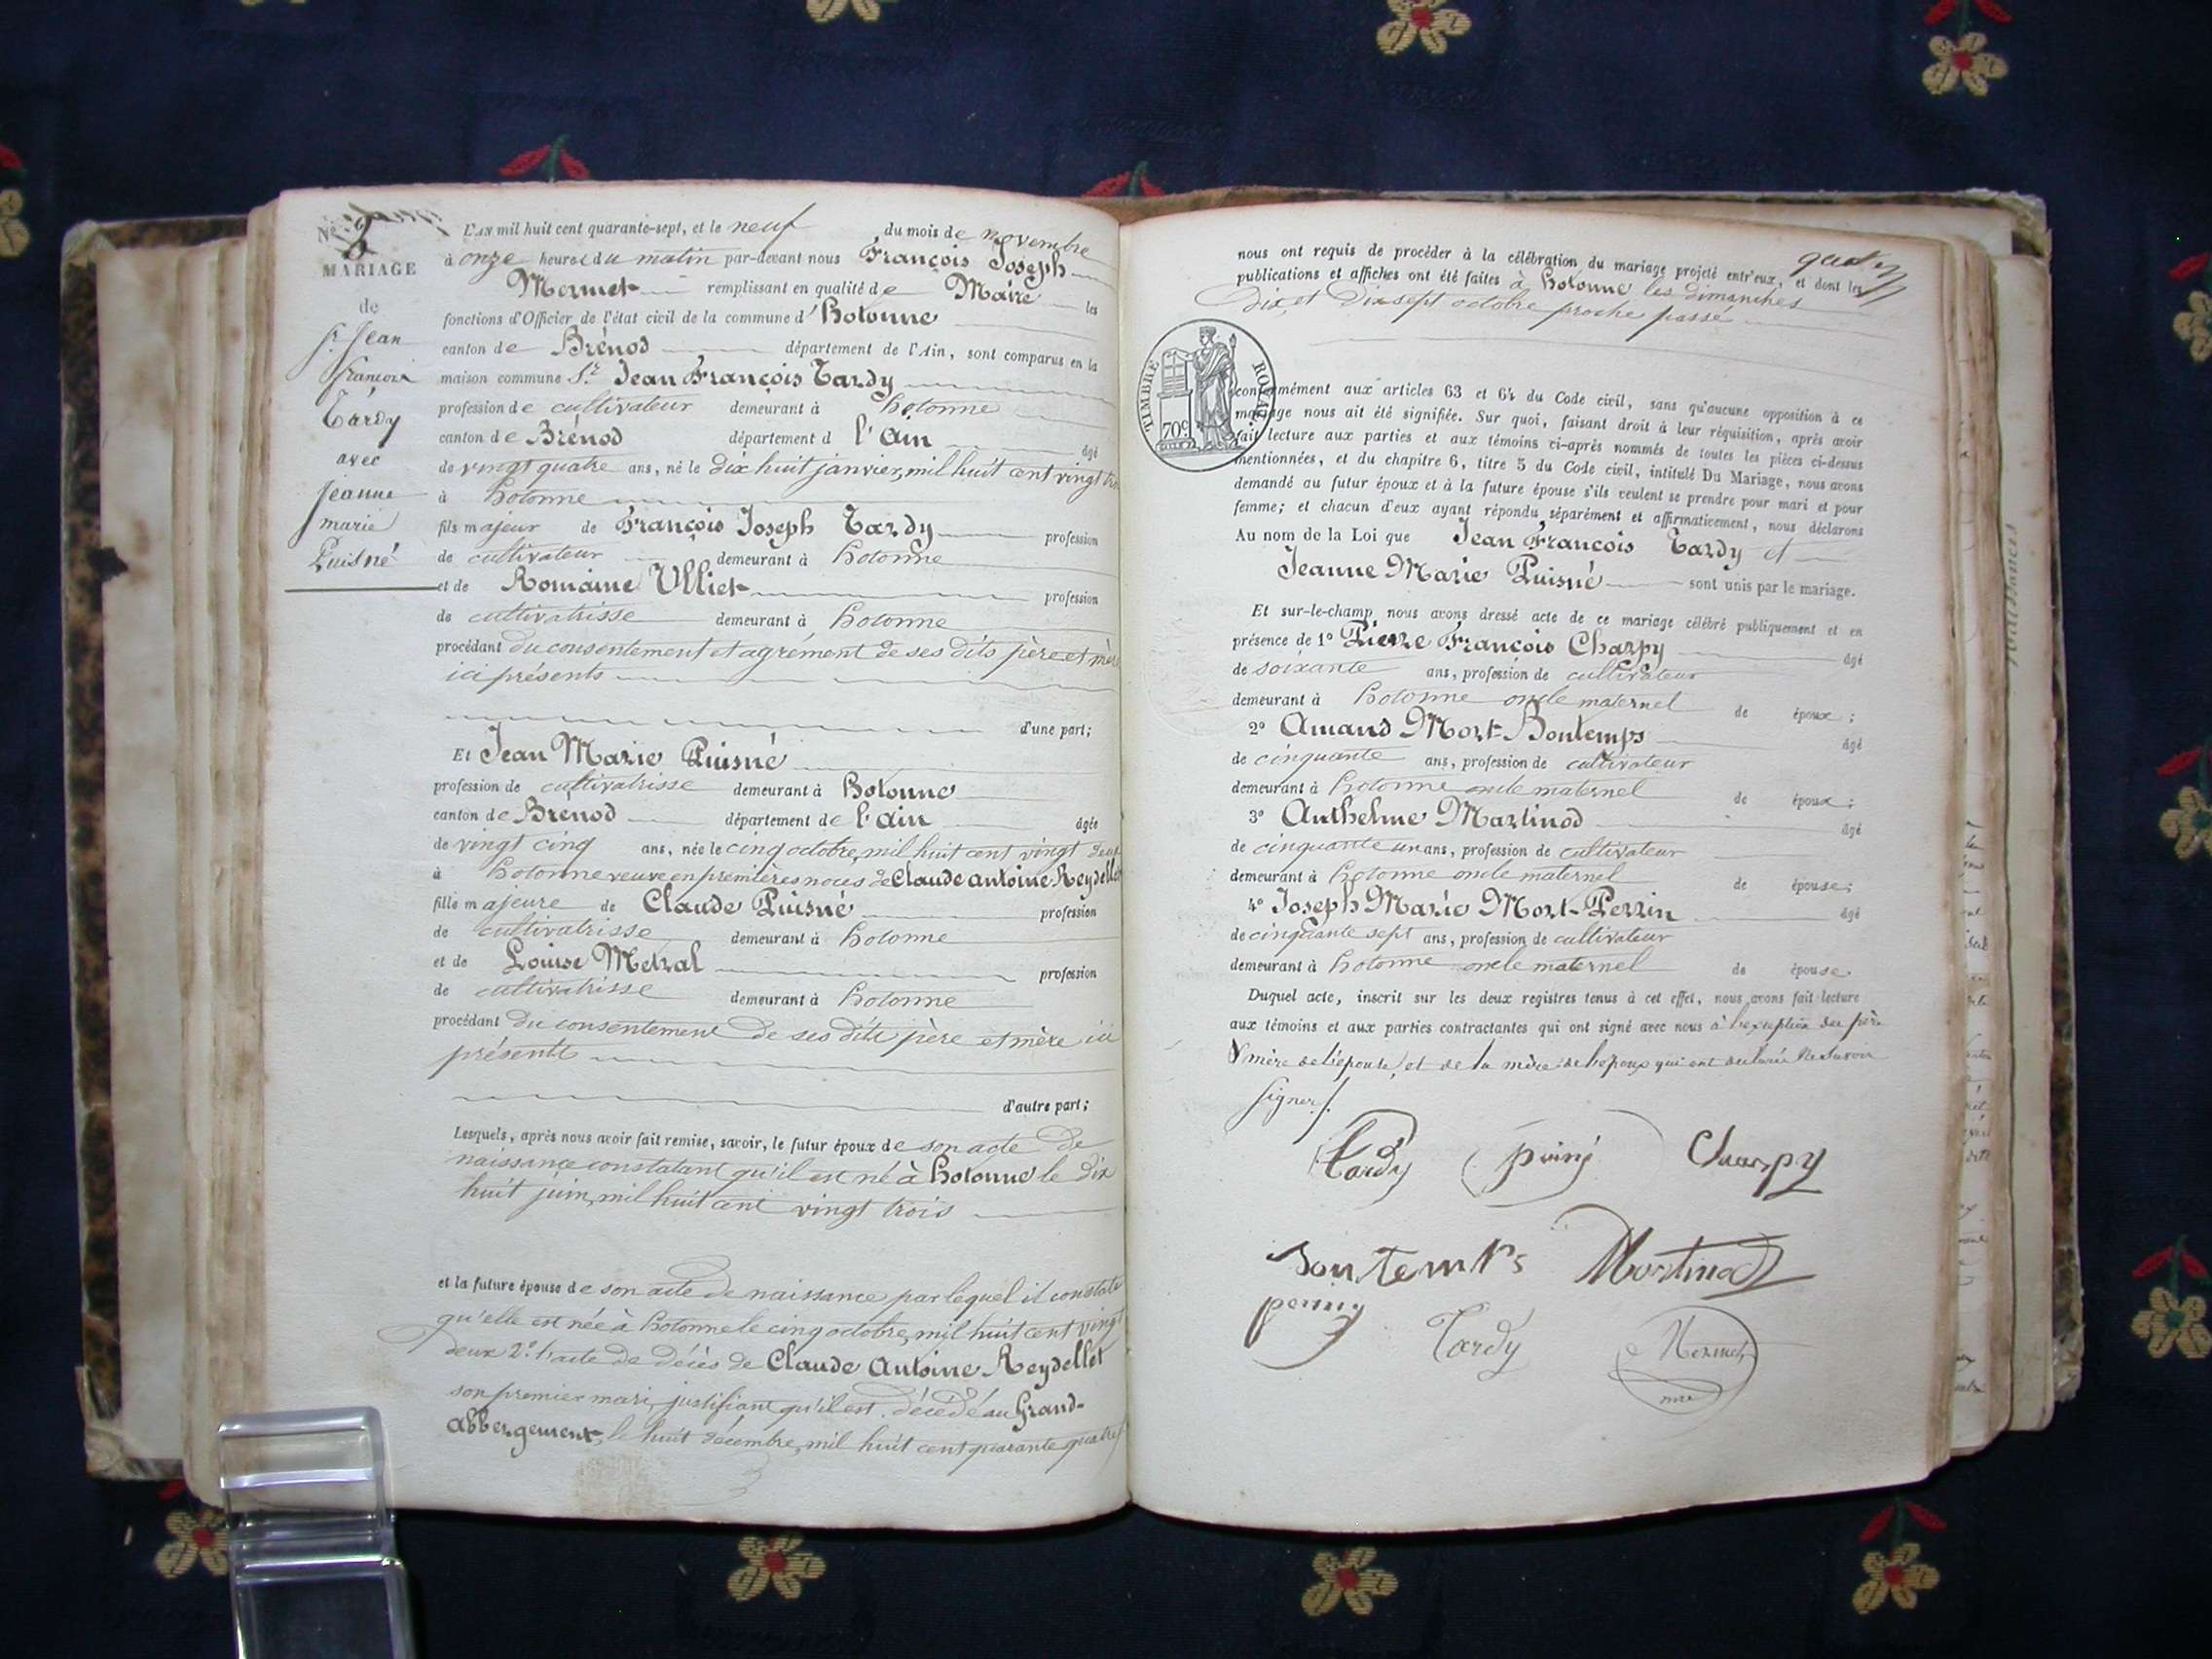 N.º 8
MARIAGE
de
S.r Jean
François
Tardy
avec
Jeanne
marie
Puisné
L'AN mil huit cent quarante-sept, et le neuf du mois de novembre
à onze heures du matin par-devant nous François Joseph
Mermet remplissant en qualité de Maire les
fonctions d'Officier de l'état civil de la commune d'hotonne
canton de Brénod département de l'Ain, sont comparus en la
maison commune S.r Jean François Tardy
profession de cultivateur demeurant à hotonne
canton de Brénod département d l'Ain âgé
de vingt quatre ans, né le dix huit janvier, mil huit cent vingt trois
à hotonne
fils majeur de François Joseph Tardy profession
de cultivateur demeurant à hotonne
et de Romaine Ulliet profession
de cultivatrisse demeurant à hotonne
procédant du consentement et agrément de ses dits père et mère
ici présents
d'une part;
Et Jean Marie Puisné
profession de cultivatrisse demeurant à hotonne
canton de Brénod département de l'Ain âgée
de vingt cinq ans, née le cinq octobre, mil huit cent vingt deux
à hotonne veuve en premières noces de Claude antoine Reydellet
fille majeure de Claude Puisné profession
de cultivatrisse demeurant à hotonne
et de Louise Metral profession
de cultivatrisse demeurant à hotonne
procédant du consentement de ses dits père et mère ici
présents
d'autre part;
Lesquels, après nous avoir fait remise, savoir, le futur époux de son acte de
naissance constatant qu'il est né à hotonne le dix
huit juin, mil huit cent vingt trois
et la future épouse de son acte de naissance par lequel il constate
qu'elle est née à hotonne le cinq octobre, mil huit cent vingt
deux 2.º l'acte de décès de Claude Antoine Reydellet
son premier mari, justifiant qu'il est décédé au Grand-
Abbergement, le huit décembre, mil huit cent quarante quatre
nous ont requis de procéder à la célébration du mariage projeté entr'eux, et dont les
publications et affiches ont été faites à hotonne les dimanches
dix, et dix sept octobre proche passé
TIMBRE ROYAL
70c
conformément aux articles 63 et 64 du Code civil, sans qu'aucune opposition à ce
mariage nous ait été signifiée. Sur quoi, faisant droit à leur réquisition, après avoir
fait lecture aux parties et aux témoins ci-après nommés de toutes les pièces ci-dessus
mentionnées, et du chapitre 6, titre 5 du Code civil, intitulé Du Mariage, nous avons
demandé au futur époux et à la future épouse s'ils veulent se prendre pour mari et pour
femme; et chacun d'eux ayant répondu séparément et affirmativement, nous déclarons
Au nom de la Loi que Jean François Tardy et
Jeanne Marie Puisné sont unis par le mariage.
Et sur-le-champ nous avons dressé acte de ce mariage célébré publiquement et en
présence de 1º Pierre François Charpy âgé
de soixante ans, profession de cultivateur
demeurant à hotonne oncle maternel de époux;
2º Amand Mort-Bontemps âgé
de cinquante ans, profession de cultivateur
demeurant à hotonne oncle maternel de époux;
3º Anthelme Martinod âgé
de cinquante un ans, profession de cultivateur
demeurant à hotonne oncle maternel de épouse;
4º Joseph Marie Mort-Perrin âgé
de cinquante sept ans, profession de cultivateur
demeurant à hotonne oncle maternel de épouse
Duquel acte, inscrit sur les deux registres tenus à cet effet, nous avons fait lecture
aux témoins et aux parties contractantes qui ont signé avec nous à l'exception des père
& mère de l'épouse, et de la mère de l'epoux qui ont declarés ne savoir
signer.
Tardy Charpy
Bontemps Martinod
Tardy Mermet
mre